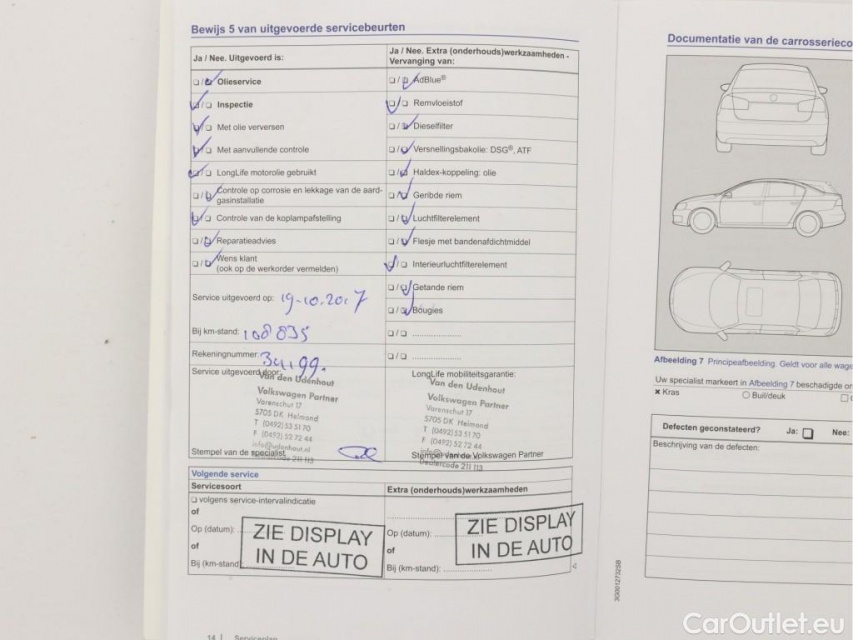 Bewijs 5 van uitgevoerde servicebeurten
Ja / Nee. Uitgevoerd is:
❑/❑ Olieservice
❑/❑ Inspectie
❑/❑ Met olie verversen
❑/❑ Met aanvullende controle
❑/❑ LongLife motorolie gebruikt
❑/❑ Controle op corrosie en lekkage van de aard-
gasinstallatie
❑/❑ Controle van de koplampafstelling
❑/❑ Reparatieadvies
❑/❑ Wens klant
(ook op de werkorder vermelden)
Service uitgevoerd op: 19-10-2017
Bij km-stand: 108835
Rekeningnummer:
Service uitgevoerd door:
Van den Udenhout
Volkswagen Partner
Varenschut 17
5705 DK Helmond
T (0492) 53 51 70
F (0492) 52 72 44
info@udenhout.nl
Dealercode 211 113
Stempel van de specialist
Ja / Nee. Extra (onderhouds)werkzaamheden -
Vervanging van:
❑/❑ AdBlue®
❑/❑ Remvloeistof
❑/❑ Dieselfilter
❑/❑ Versnellingsbakolie: DSG®, ATF
❑/❑ Haldex-koppeling: olie
❑/❑ Geribde riem
❑/❑ Luchtfilterelement
❑/❑ Flesje met bandenafdichtmiddel
❑/❑ Interieurluchtfilterelement
❑/❑ Getande riem
❑/❑ Bougies
❑/❑ ....................
❑/❑ ....................
LongLife mobiliteitsgarantie:
Van den Udenhout
Volkswagen Partner
Varenschut 17
5705 DK Helmond
T (0492) 53 51 70
F (0492) 52 72 44
Dealercode 211 113
Stempel van de Volkswagen Partner
Volgende service
Servicesoort
❑ volgens service-intervalindicatie
of
Op (datum):
of
Bij (km-stand)
ZIE DISPLAY
IN DE AUTO
Extra (onderhouds)werkzaamheden
Op (datum):
of
Bij (km-stand):
ZIE DISPLAY
IN DE AUTO
14 | Serviceplan
Documentatie van de carrosserieco
Afbeelding 7 Principeafbeelding. Geldt voor alle wage
Uw specialist markeert in Afbeelding 7 beschadigde on
× Kras ○ Buil/deuk
Defecten geconstateerd? Ja: ❑ Nee:
Beschrijving van de defecten:
3G0012732SB
CarOutlet.eu